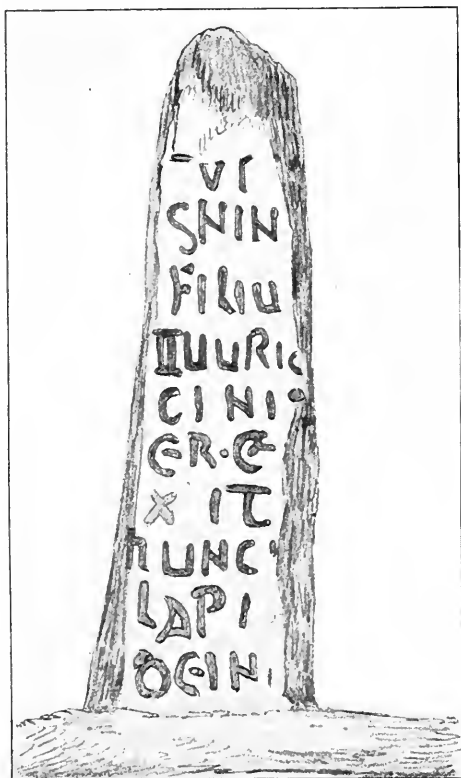 SNIN
FILIU
UURIC
CINI
ER·E
XIT
hUNC
LAPI
DEIN